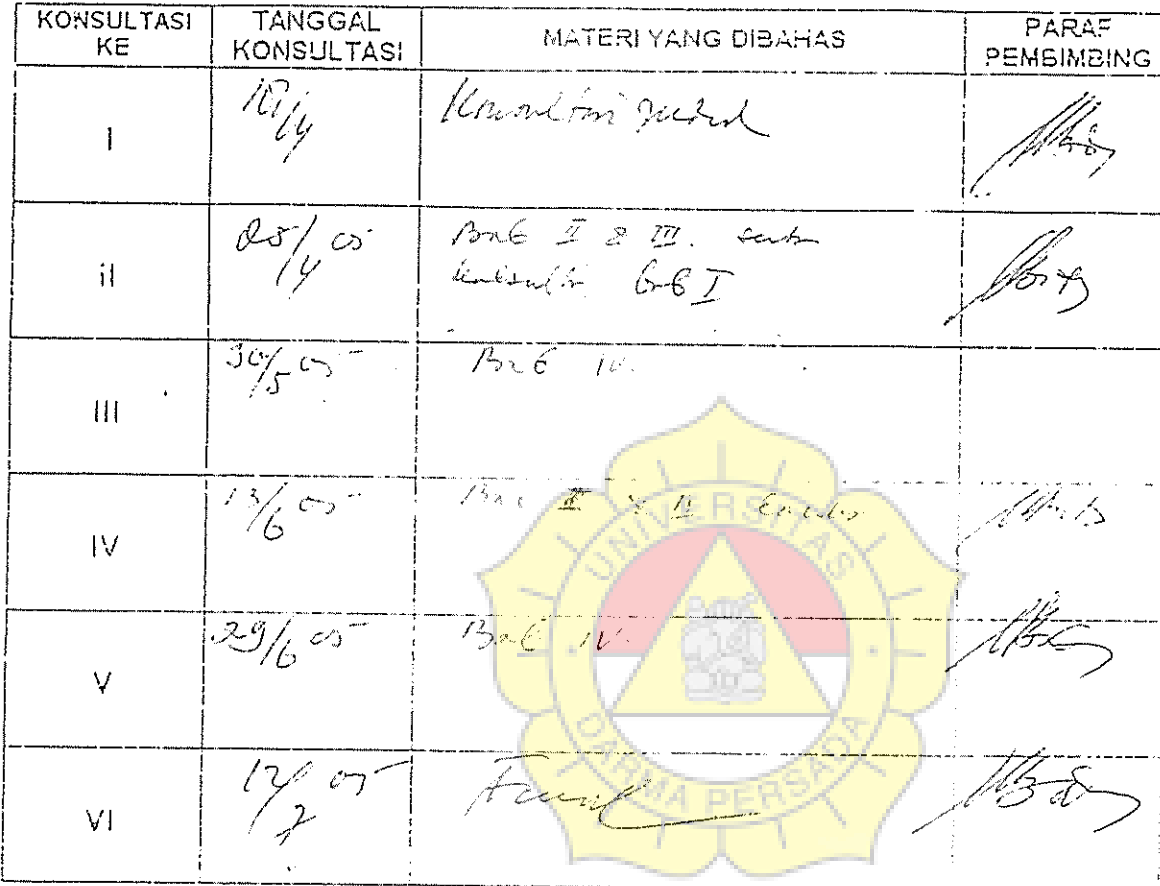 KONSULTASI KE
TANGGAL KONSULTASI
MATERI YANG DIBAHAS
PARAF PEMBIMBING
I
Konsultasi Judul
II
25/4 05
Bab II & III.
Bab I
III
30/5 05
Bab IV.
IV
13/6 05
Bab III & IV
V
29/6 05
Bab IV.
VI
12/7 05
UNIVERSITAS
DARMA PERSADA